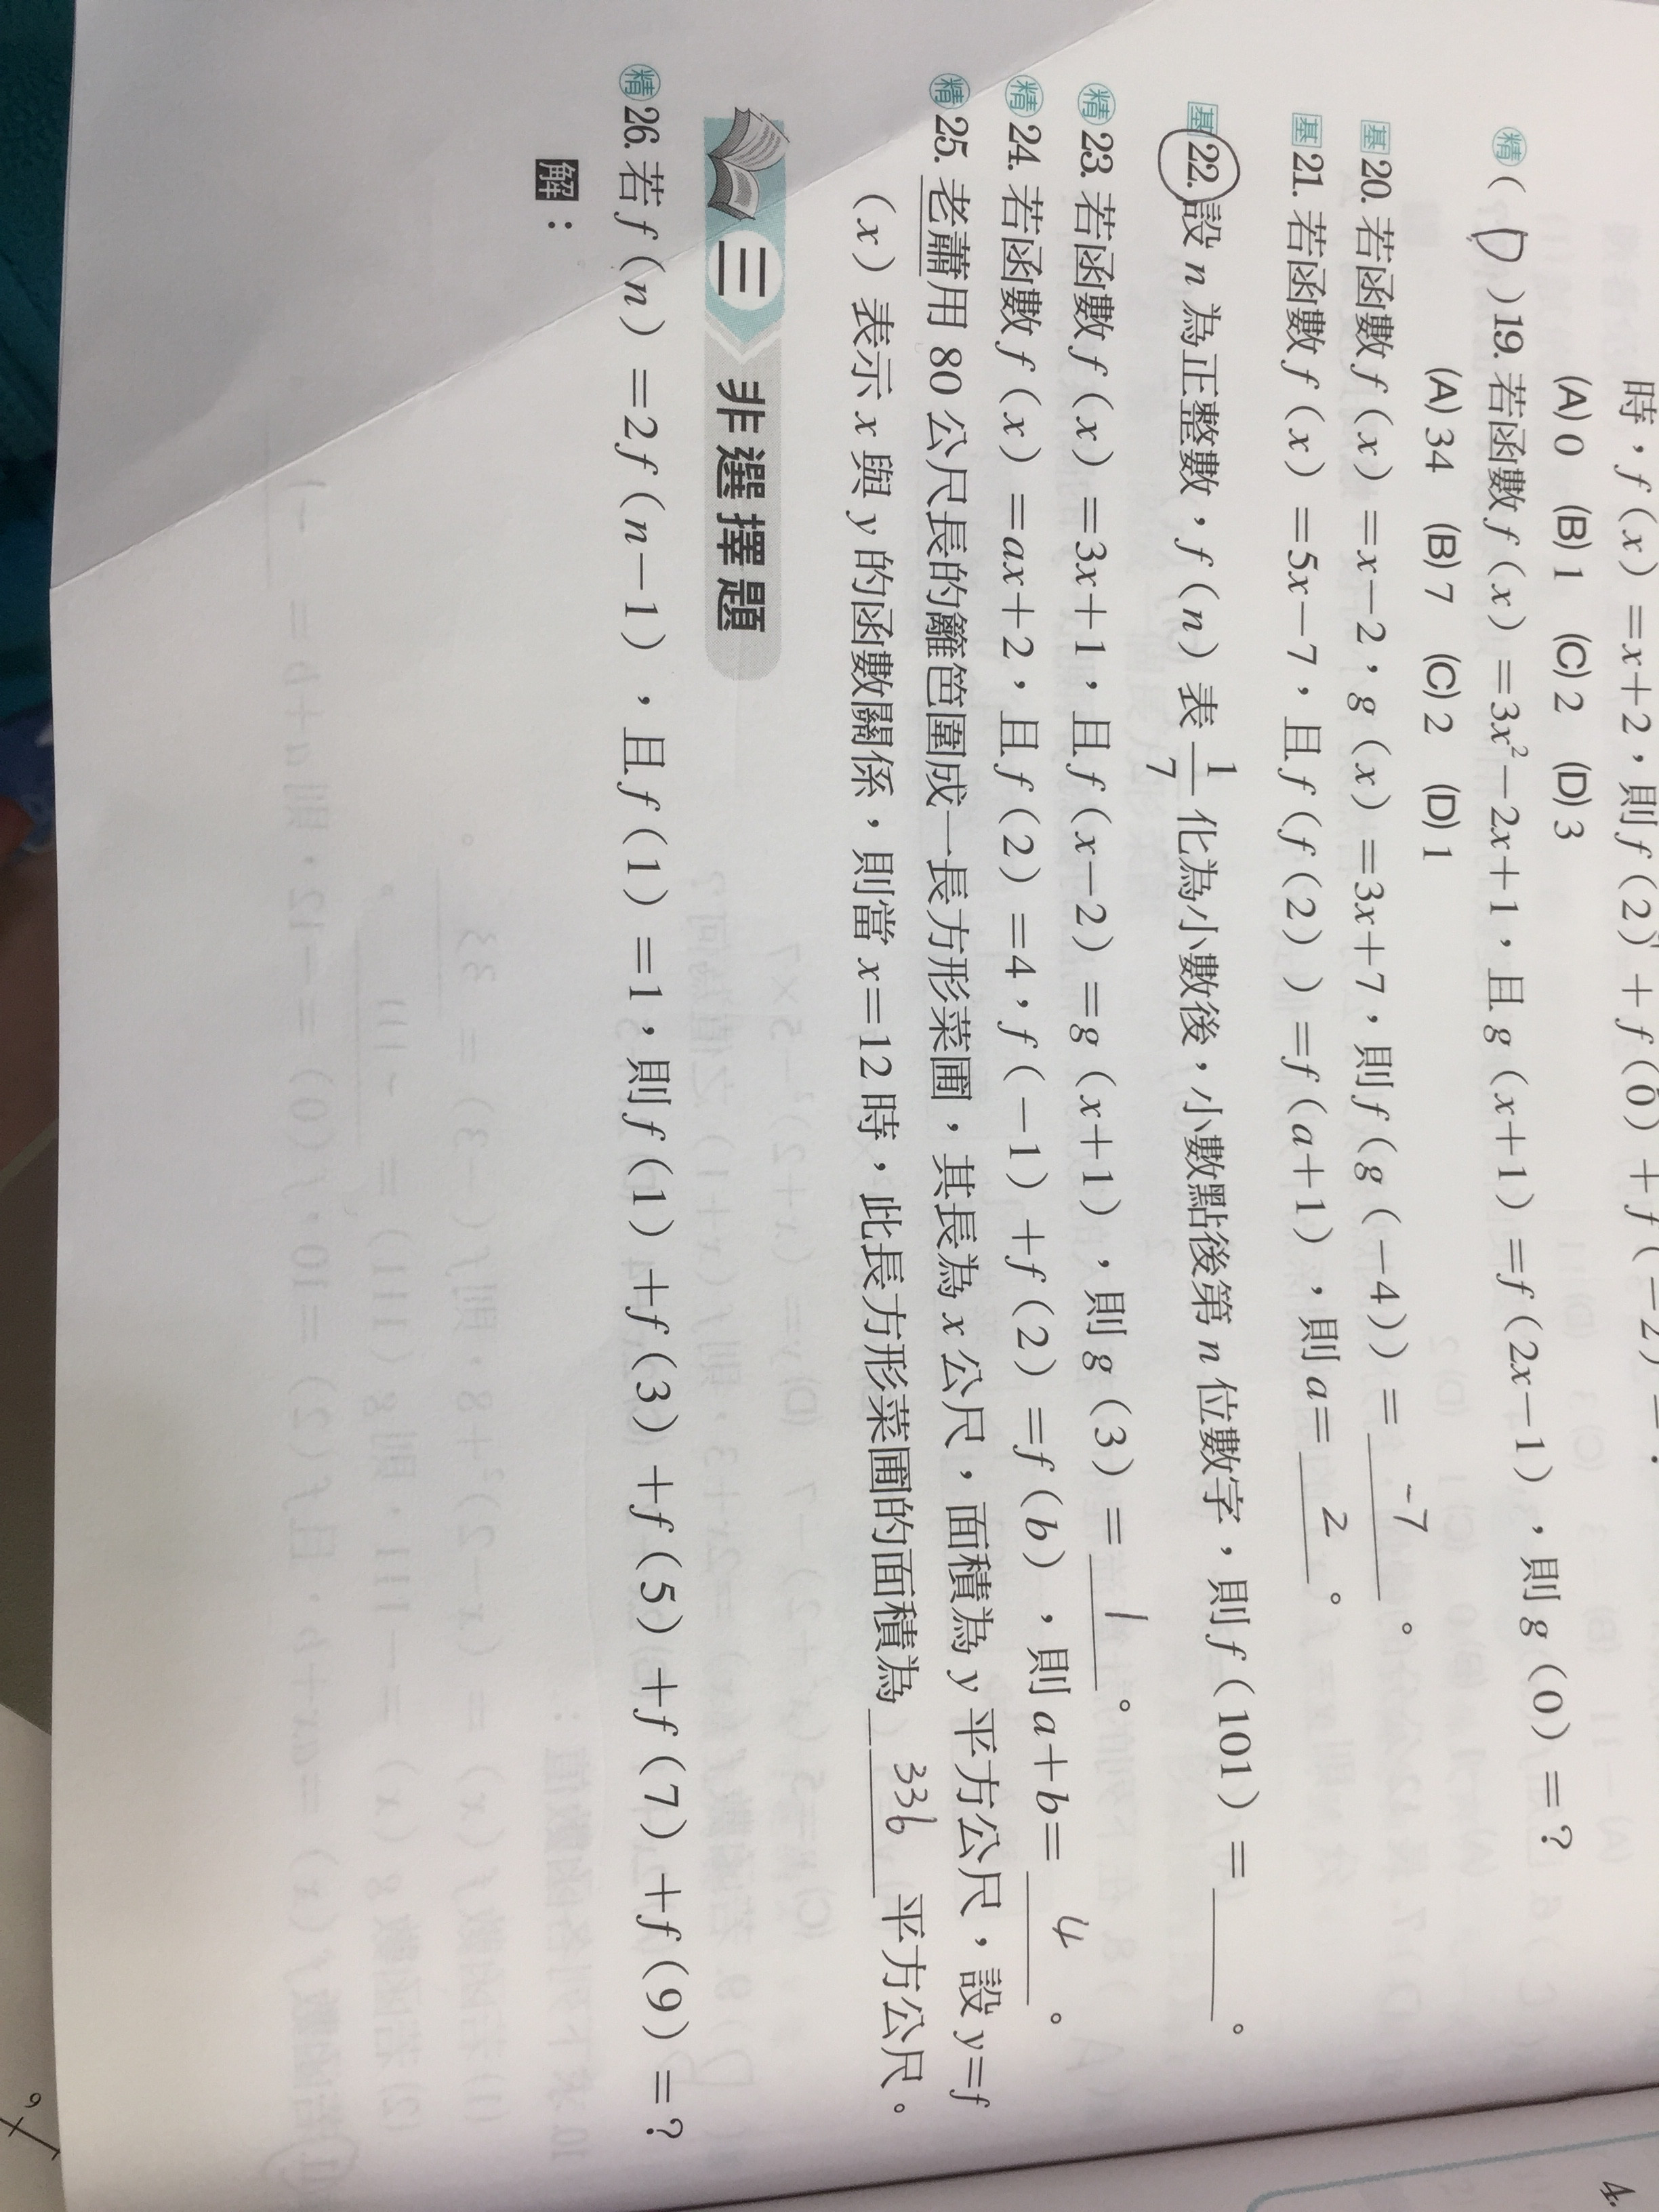 時，f（x）＝x＋2，則f（2）＋f（0）＋f（－2）＝？
(A) 0 (B) 1 (C) 2 (D) 3
精（D）19. 若函數f（x）＝3x²－2x＋1，且g（x＋1）＝f（2x－1），則g（0）＝？
(A) 34 (B) 7 (C) 2 (D) 1
基20. 若函數f（x）＝x－2，g（x）＝3x＋7，則f（g（－4））＝ -7 。
基21. 若函數f（x）＝5x－7，且f（f（2））＝f（a＋1），則a＝ 2 。
基22. 設n為正整數，f（n）表1/7化為小數後，小數點後第n位數字，則f（101）＝＿＿＿。
精23. 若函數f（x）＝3x＋1，且f（x－2）＝g（x＋1），則g（3）＝ 1 。
精24. 若函數f（x）＝ax＋2，且f（2）＝4，f（－1）＋f（2）＝f（b），則a＋b＝ 4 。
精25. 老蕭用80公尺長的籬笆圍成一長方形菜圃，其長為x公尺，面積為y平方公尺，設y＝f
（x）表示x與y的函數關係，則當x＝12時，此長方形菜圃的面積為 336 平方公尺。
三 非選擇題
精26. 若f（n）＝2f（n－1），且f（1）＝1，則f（1）＋f（3）＋f（5）＋f（7）＋f（9）＝？
解：